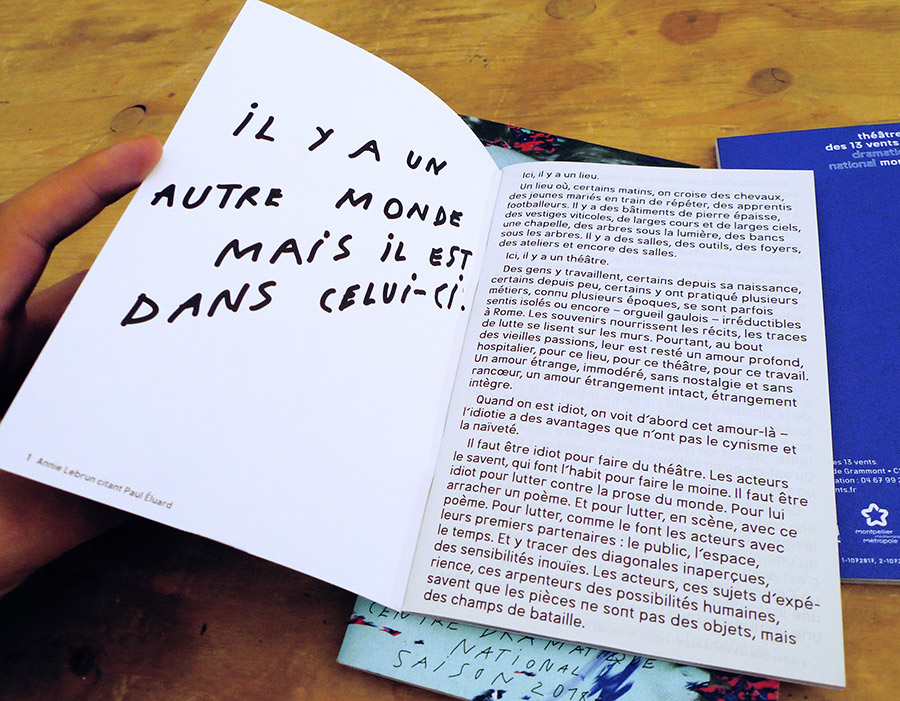 iL Y A UN
AUTRE MONDE
MAiS iL EST
DANS CELUi-Ci.
1 Annie Lebrun citant Paul Éluard
Ici, il y a un lieu.
Un lieu où, certains matins, on croise des chevaux,
des jeunes mariés en train de répéter, des apprentis
footballeurs. Il y a des bâtiments de pierre épaisse,
des vestiges viticoles, de larges cours et de larges ciels,
une chapelle, des arbres sous la lumière, des bancs
sous les arbres. Il y a des salles, des outils, des foyers,
des ateliers et encore des salles.
Ici, il y a un théâtre.
Des gens y travaillent, certains depuis sa naissance,
certains depuis peu, certains y ont pratiqué plusieurs
métiers, connu plusieurs époques, se sont parfois
sentis isolés ou encore – orgueil gaulois – irréductibles
à Rome. Les souvenirs nourrissent les récits, les traces
de lutte se lisent sur les murs. Pourtant, au bout
des vieilles passions, leur est resté un amour profond,
hospitalier, pour ce lieu, pour ce théâtre, pour ce travail.
Un amour étrange, immodéré, sans nostalgie et sans
rancœur, un amour étrangement intact, étrangement
intègre.
Quand on est idiot, on voit d'abord cet amour-là –
l'idiotie a des avantages que n'ont pas le cynisme et
la naïveté.
Il faut être idiot pour faire du théâtre. Les acteurs
le savent, qui font l'habit pour faire le moine. Il faut être
idiot pour lutter contre la prose du monde. Pour lui
arracher un poème. Et pour lutter, en scène, avec ce
poème. Pour lutter, comme le font les acteurs avec
leurs premiers partenaires : le public, l'espace,
le temps. Et y tracer des diagonales inaperçues,
des sensibilités inouïes. Les acteurs, ces sujets d'expé-
rience, ces arpenteurs des possibilités humaines,
savent que les pièces ne sont pas des objets, mais
des champs de bataille.
théâtre
des 13 vents
dramatic
national mon
es 13 vents
de Grammont • CS
ation : 04 67 99 2
nts.fr
montpellier
méditerranée
métropole
1-1072817, 2-1072
CENTRE DRAMATIQUE
NATIONAL
SAISON 2018